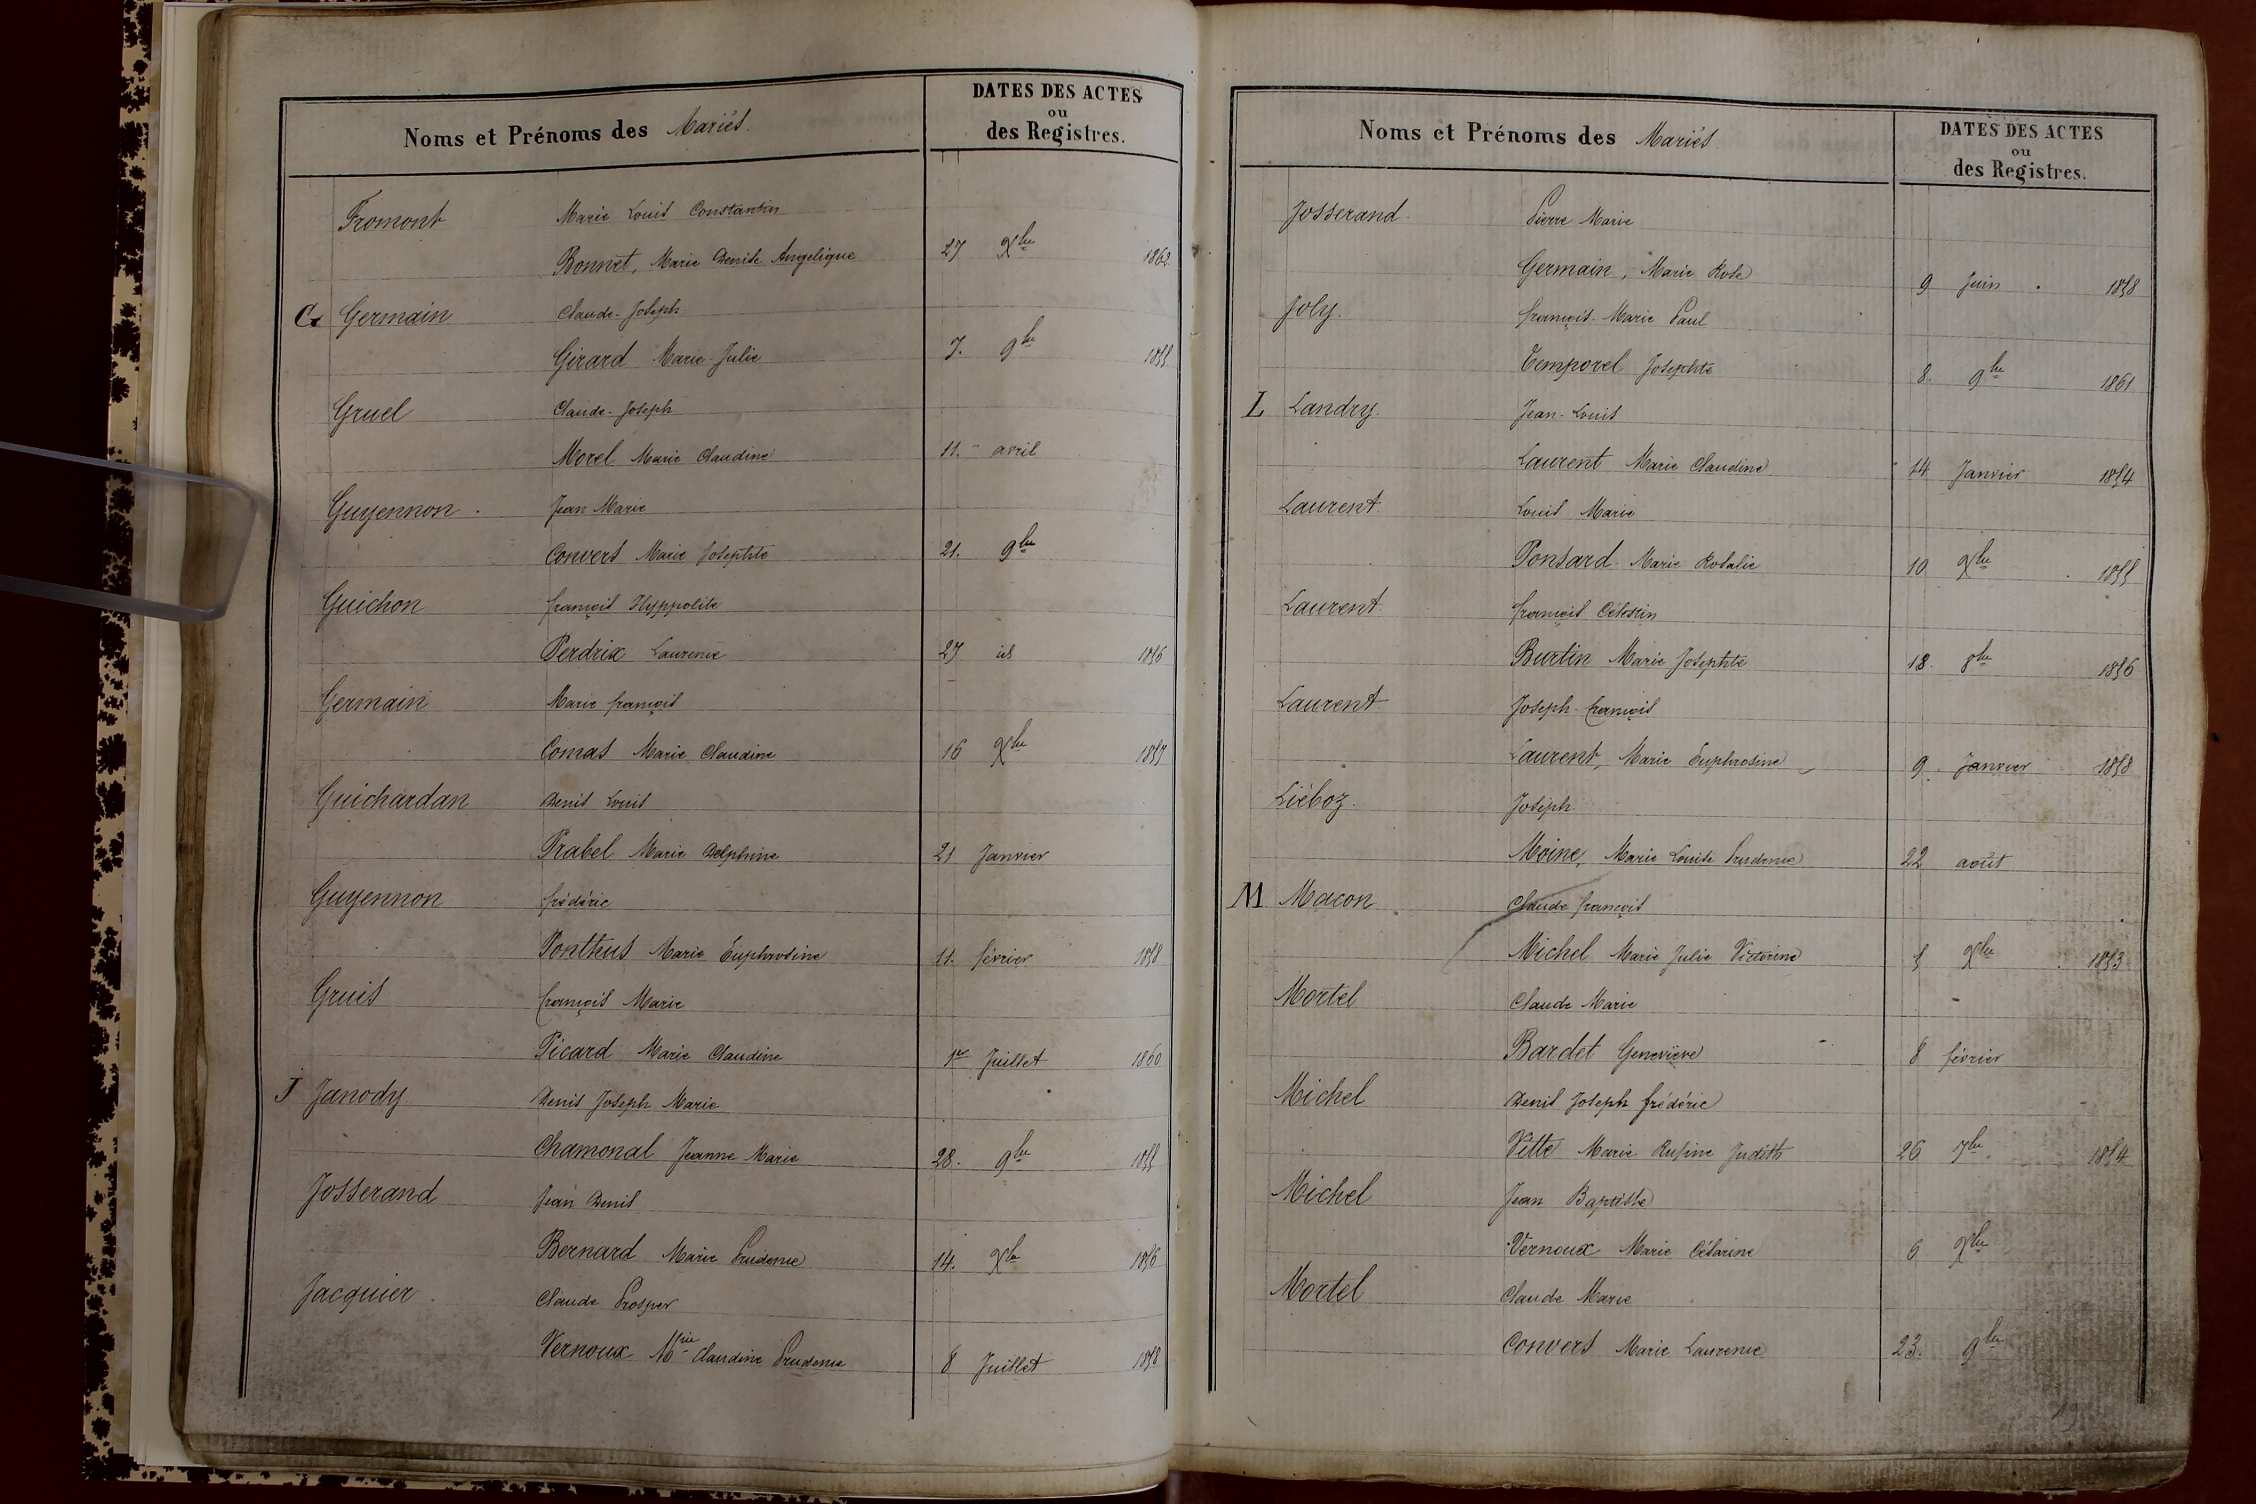 Noms et Prénoms des Mariés.
DATES DES ACTES
ou
des Registres.
Fromont Marie Louis Constantin
Bonnet, Marie Denise Angelique 27 Xbre 1862
G Germain Claude-Joseph
Girard Marie-Julie 7. 9bre 1855
Gruel Claude-Joseph
Morel Marie Claudine 11. avril
Guyennon. Jean Marie
Convers Marie Josephte 21. 9bre
Guichon françois Hyppolite
Perdrix Laurence 27 id 1856
Germain Marie françois
Comas Marie Claudine 16 Xbre 1857
Guichardan Denis Louis
Prabel Marie Delphine 21 Janvier
Guyennon frédéric
Ponthus Marie Euphrosine 11. février 1858
Gruis françois Marie
Picard Marie Claudine 1er Juillet 1860
J Janody Denis Joseph Marie
Chamonal Jeanne Marie 28. 9bre 1855
Josserand Jean Denis
Bernard Marie Prudence 14. Xbre 1856
Jacquier. Claude Prosper
Vernoux Mie Claudine Prudence 8 Juillet 1858
Noms et Prénoms des Mariés
DATES DES ACTES
ou
des Registres.
Josserand Pierre Marie
Germain, Marie Rose 9 Juin 1858
Joly. françois-Marie Paul
Temporel Josephte 8. 9bre 1861
L Landry. Jean-Louis
Laurent Marie Claudine 14 Janvier 1854
Laurent Louis Marie
Ponsard Marie Rosalie 10 Xbre 1855
Laurent françois Célestin
Burtin Marie Josephte 18. 8bre 1856
Laurent Joseph-françois
Laurent, Marie Euphrosine 9. Janvier 1858
Liéboz. Joseph
Moine, Marie Louise Prudence 22 août
M Macon Claude françois
Michel Marie Julie Victorine 5 Xbre 1853
Mortel Claude Marie
Bardet Geneviève 8 février
Michel Denis Joseph frédéric
Vitte Marie Rufine Judith 26 7bre 1854
Michel Jean Baptiste
Vernoux Marie Césarine 6 Xbre
Mortel Claude Marie
Convers Marie Laurence 23. 9bre
19